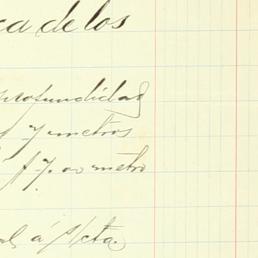 ca de los
profundidad
7 metros
$7.00 metro
á s/cta.